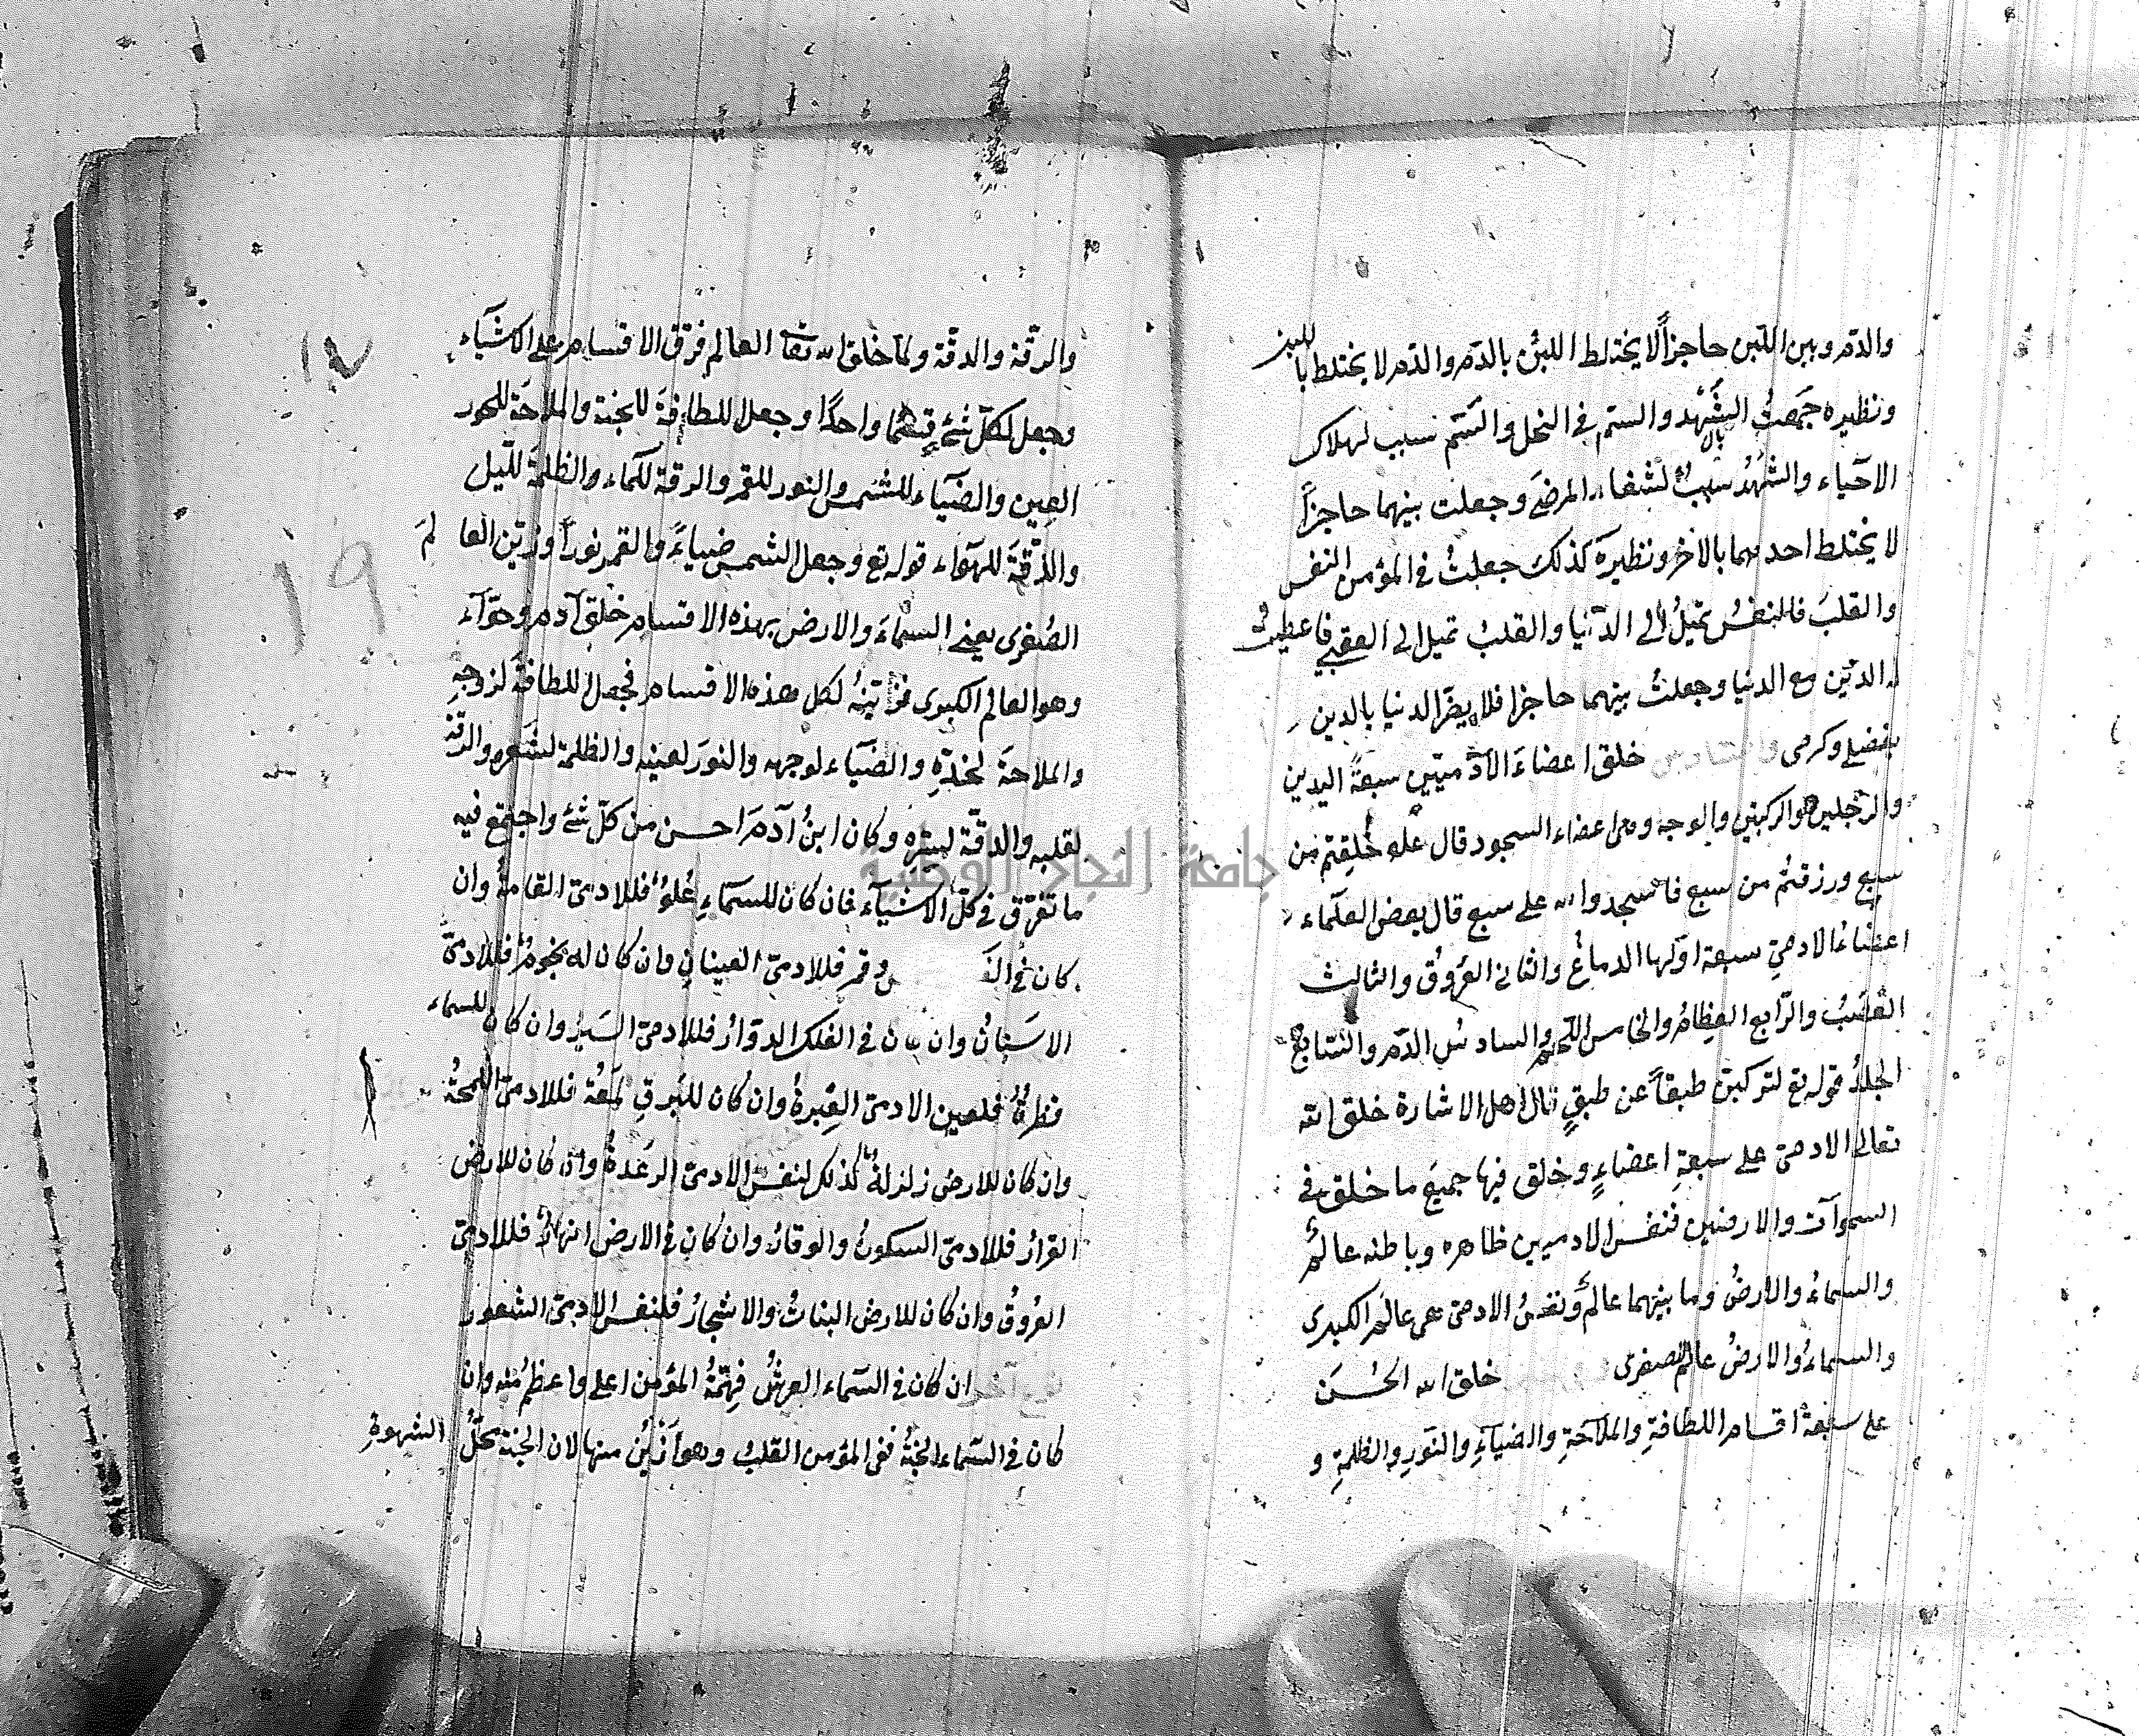 والدّم وبين اللّبن حاجزاً لا يختلط اللبن بالدّم والدّم لا يختلط باللبن
ونظيره جمعتُ الشَّهد والسّم في النحل والسَّم سبب لهلاك
الاحياء والشهدُ سببٌ لشفاء المرضى وجعلت بينهما حاجزاً
لا يختلط احدهما بالاخر ونظيره كذلك جعلتُ في المؤمن النفس
والقلبَ فالنفسُ تميلُ الى الدّنيا والقلبُ تميل الى العقبى فاعطيتُ
له الدّين مع الدنيا وجعلتُ بينهما حاجزا فلا يضرّ الدنيا بالدين
بفضلي وكرمى خلق اعضاءَ الآدميّين سبعةً اليدين
والرّجلين والركبتين والوجه وهى اعضاء السجود قال علم خُلِقتم من
سبع ورزقتُم من سبع فاسجدوا لله على سبع قال بعض العلماء
اعضاءُ الادمىّ سبعة اوّلها الدماغُ والثانى العُروُقُ والثالث
العَصَبُ والرّابع العِظامُ والخامس اللّحم والسادسُ الدّم والسّابع
الجلدُ قوله تع لتركبنّ طبقاً عن طبقٍ قال اهل الاشارة خلق الله
تعالى الادمىّ على سبعةِ اعضاءٍ وخلق فيها جميعَ ما خلق فى
السموات والارضين فنفس الادميين ظاهره وباطنه عالمٌ
والسماءُ والارضُ وما بينهما عالمٌ ونفسُ الادمىّ هى عالم الكبرى
والسماءُ والارضُ عالم الصغرى خلق الله الحُسنَ
على سبعة اقسام اللطافةِ والملاحةِ والضياءِ والنّورِ والظلمةِ و
والرقّة والدقّة ولمّا خلق الله تعا العالم فرّق الاقسام على الاشياء
وجعل لكلّ شئٍ قِسْمًا واحدًا وجعل للطافةَ للجنة والملاحةَ للحور
العين والضّياء للشمس والنور للقمر والرقة للماء والظلمةَ للّيل
والدِّقّةَ للهواء قوله تع وجعل الشمس ضياءً والقمر نوراً وزيّن العالمَ
الصُغرى يعنى السماءَ والارض بهذه الاقسام خلق آدم وحوّاء
وهو العالم الكبرى فزيّنهُ لكل هذه الاقسام فجعل للطافةَ لزوجهِ
والملاحةَ لخدّهِ والضّياء لوجهه والنورَ لعينه والظلمة لشعره والرقّة
لقلبه والدقّة لسِرّه وكان ابنُ آدمَ احسن من كلّ شئ واجتمع فيه
ما تفرّق فى كلّ الاشياء فان كان للسماءِ عُلوٌّ فللادمىّ القامةُ وان
كان فى وقمر فللادمىّ العينانِ وان كان له نجومٌ فللادمىّ
الاسنانُ وان كان فى الفلك الدوّارُ فللادمىّ السَيرُ وان كان للسماء
قطرةٌ فلعين الادمىّ العِبرةُ وان كان للبرقِ لمَعةٌ فللادمىّ اللّمحةُ
وان كان للارض زلزلةٌ كذلك لنفس الادمىّ الرعدةُ وان كان للارض
القرارُ فللادمىّ السكونُ والوقارُ وان كان فى الارض انهارٌ فللادمىّ
العُروُقُ وان كان للارض النباتُ والاشجارُ فلنفس الادمىّ الشعور
ان كان فى السّماء العرشُ فهِمّةُ المؤمن اعلى واعظمُ منه وان
كان فى السّماء الجنّةُ ففى المؤمن القلبُ وهو أَزْيَنُ منها لان الجنة محلُّ الشهوةِ
١٧
١٩
جامعة النجاح الوطنية